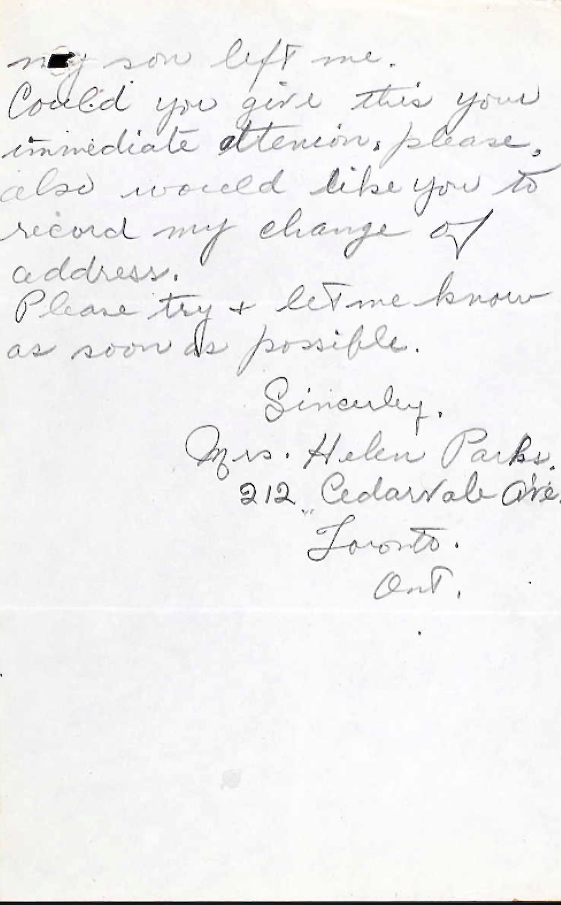 my son left me.
Could you give this your
immediate attenion, please,
also would like you to
record my change of
address.
Please try + let me know
as soon as possible.
Sincerley,
Mrs. Helen Parks.
212 Cedarvale Ave.
Toronto.
Ont.